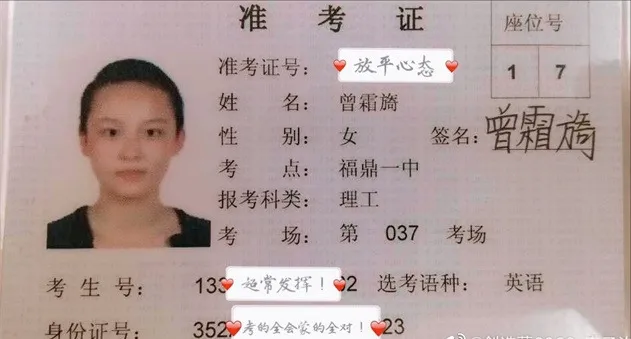 准 考 证
座位号
1 7
准考证号： 放平心态
姓 名：曾霜旖
性 别：女 签名：曾霜旖
考 点：福鼎一中
报考科类：理工
考 场：第 037 考场
考 生 号：133 超常发挥！ 62 选考语种： 英语
身份证号：352 考的全会蒙的全对！ 23